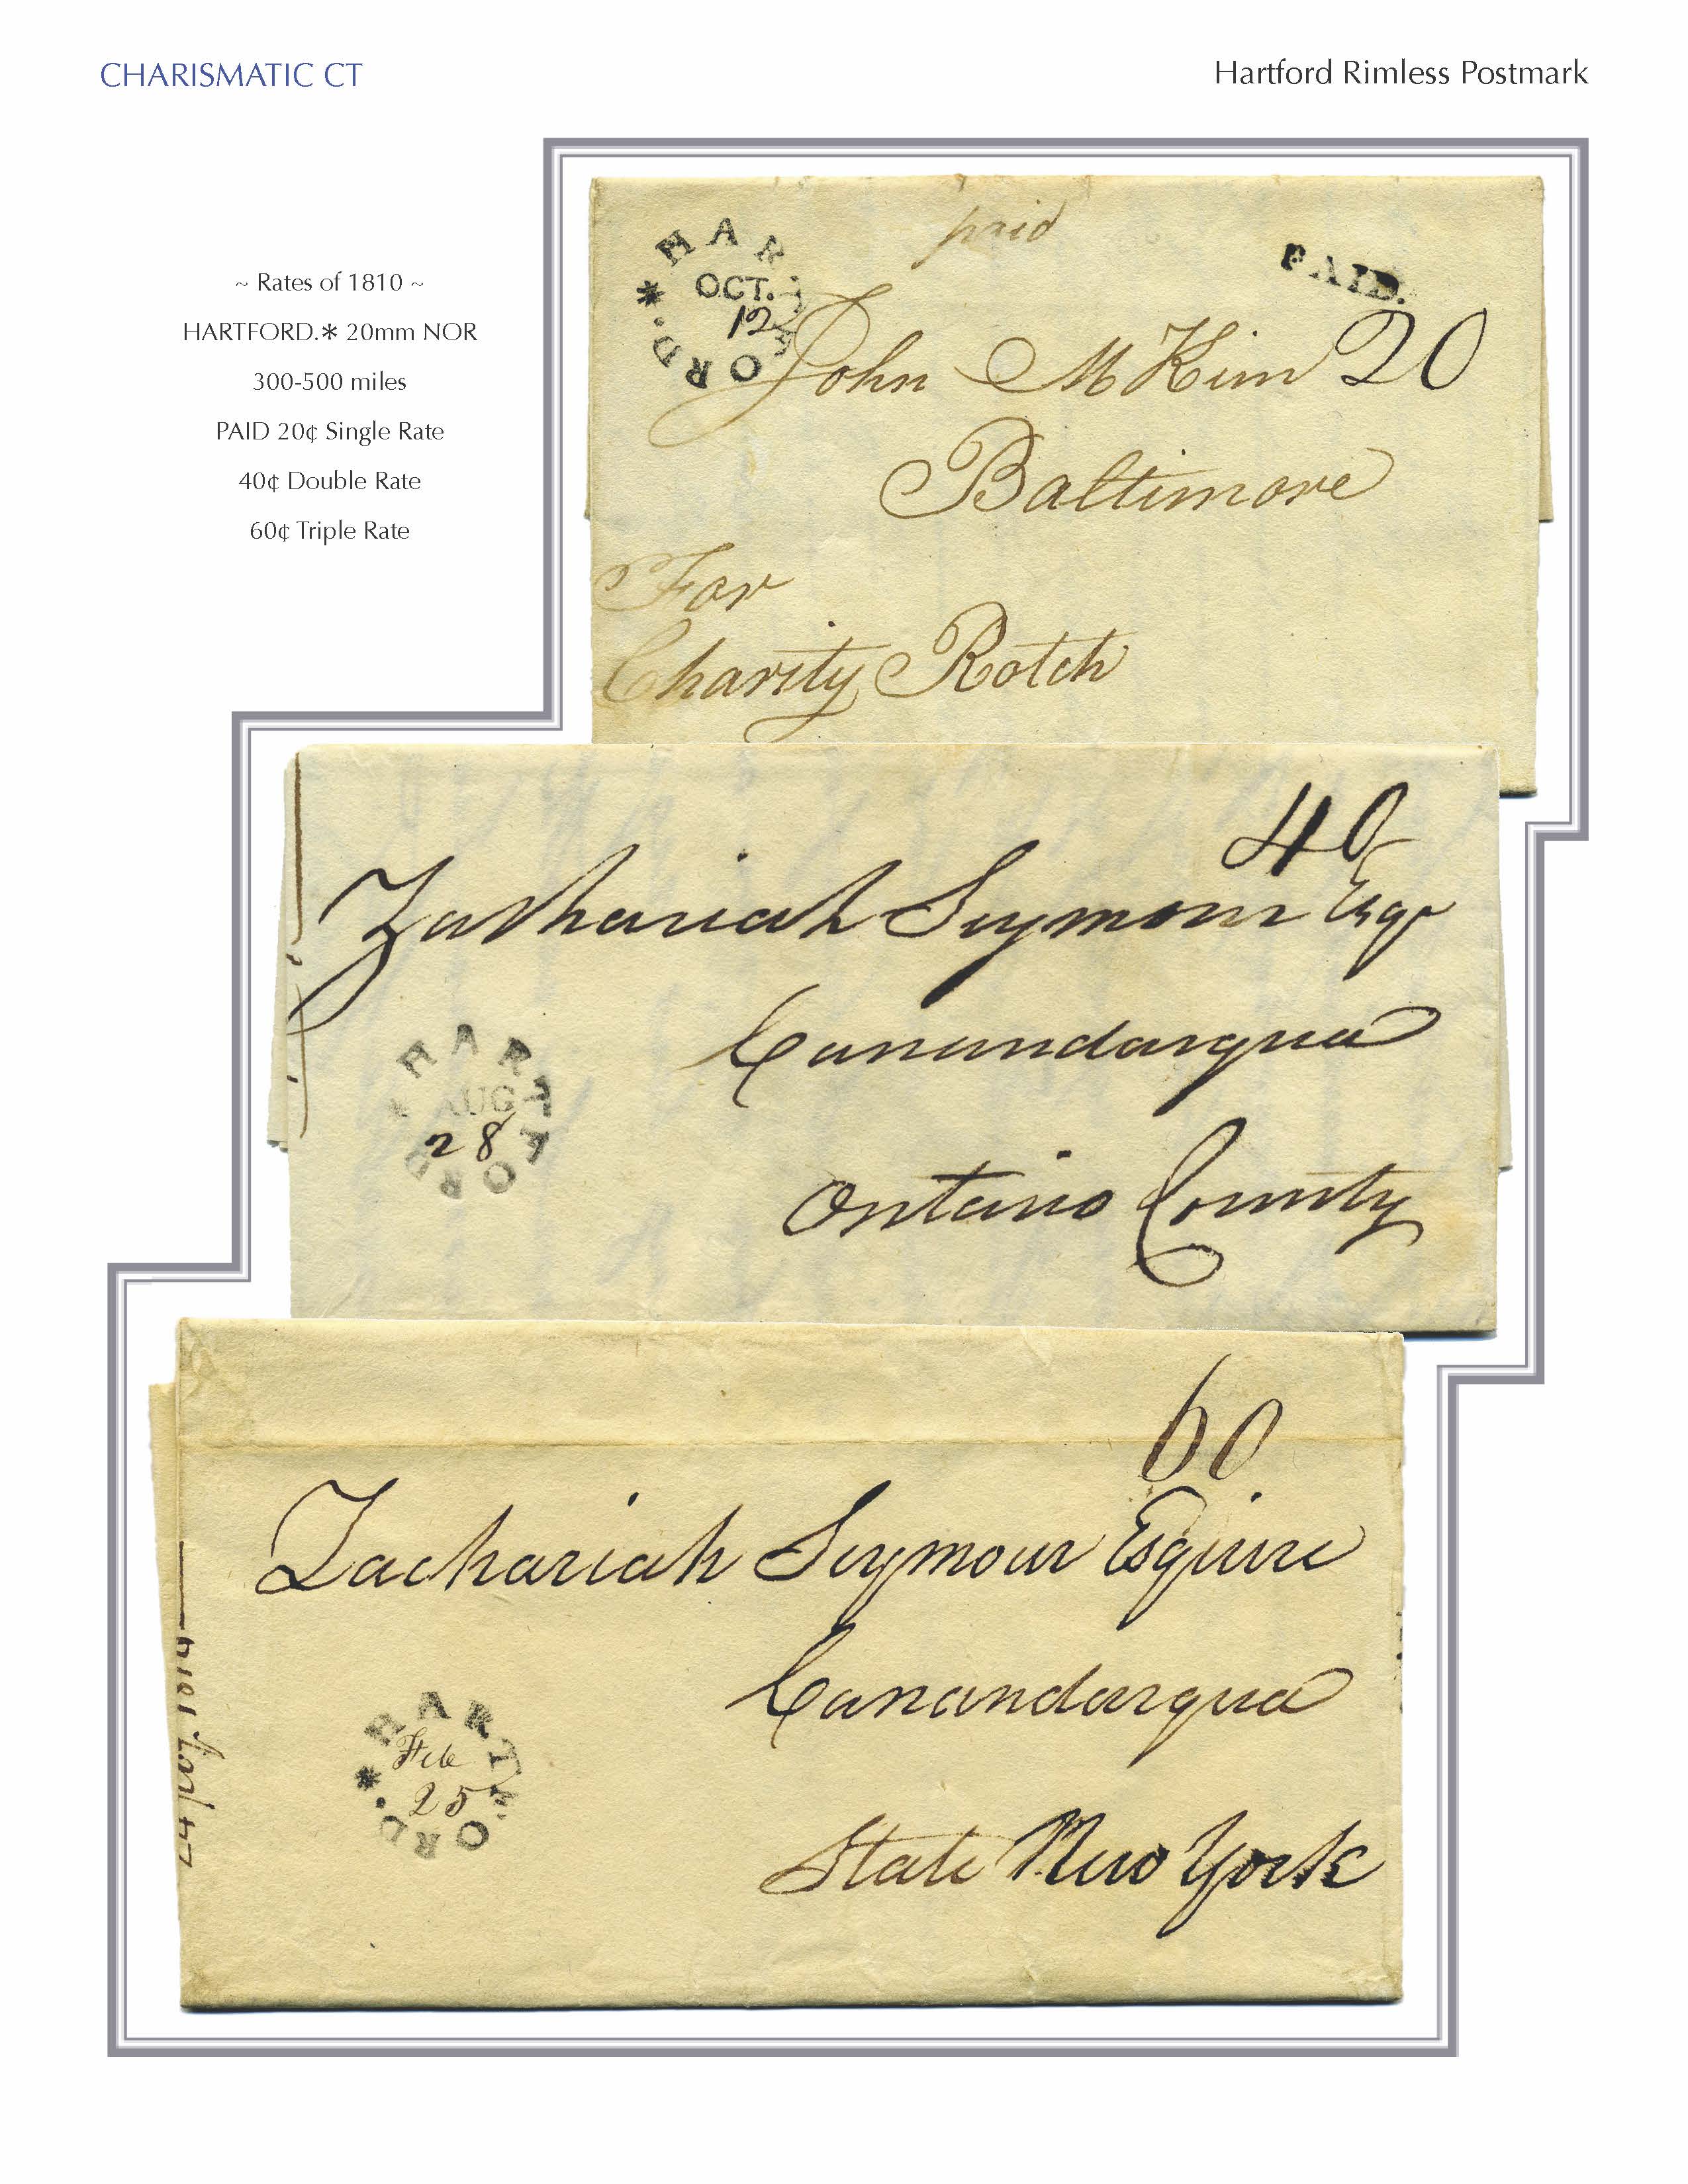 CHARISMATIC CT
Hartford Rimless Postmark
~ Rates of 1810 ~
HARTFORD.* 20mm NOR
300-500 miles
PAID 20¢ Single Rate
40¢ Double Rate
60¢ Triple Rate
paid
HARTFORD.*
OCT.
12
PAID.
John McKim 20
Baltimore
For
Charity Rotch
40
Zachariah Seymour Esqr
Canandargua
Ontario County
HARTFORD *
AUG
28
60
Zachariah Seymour Esquire
Canandargua
State New York
HARTFORD.*
Feb
25